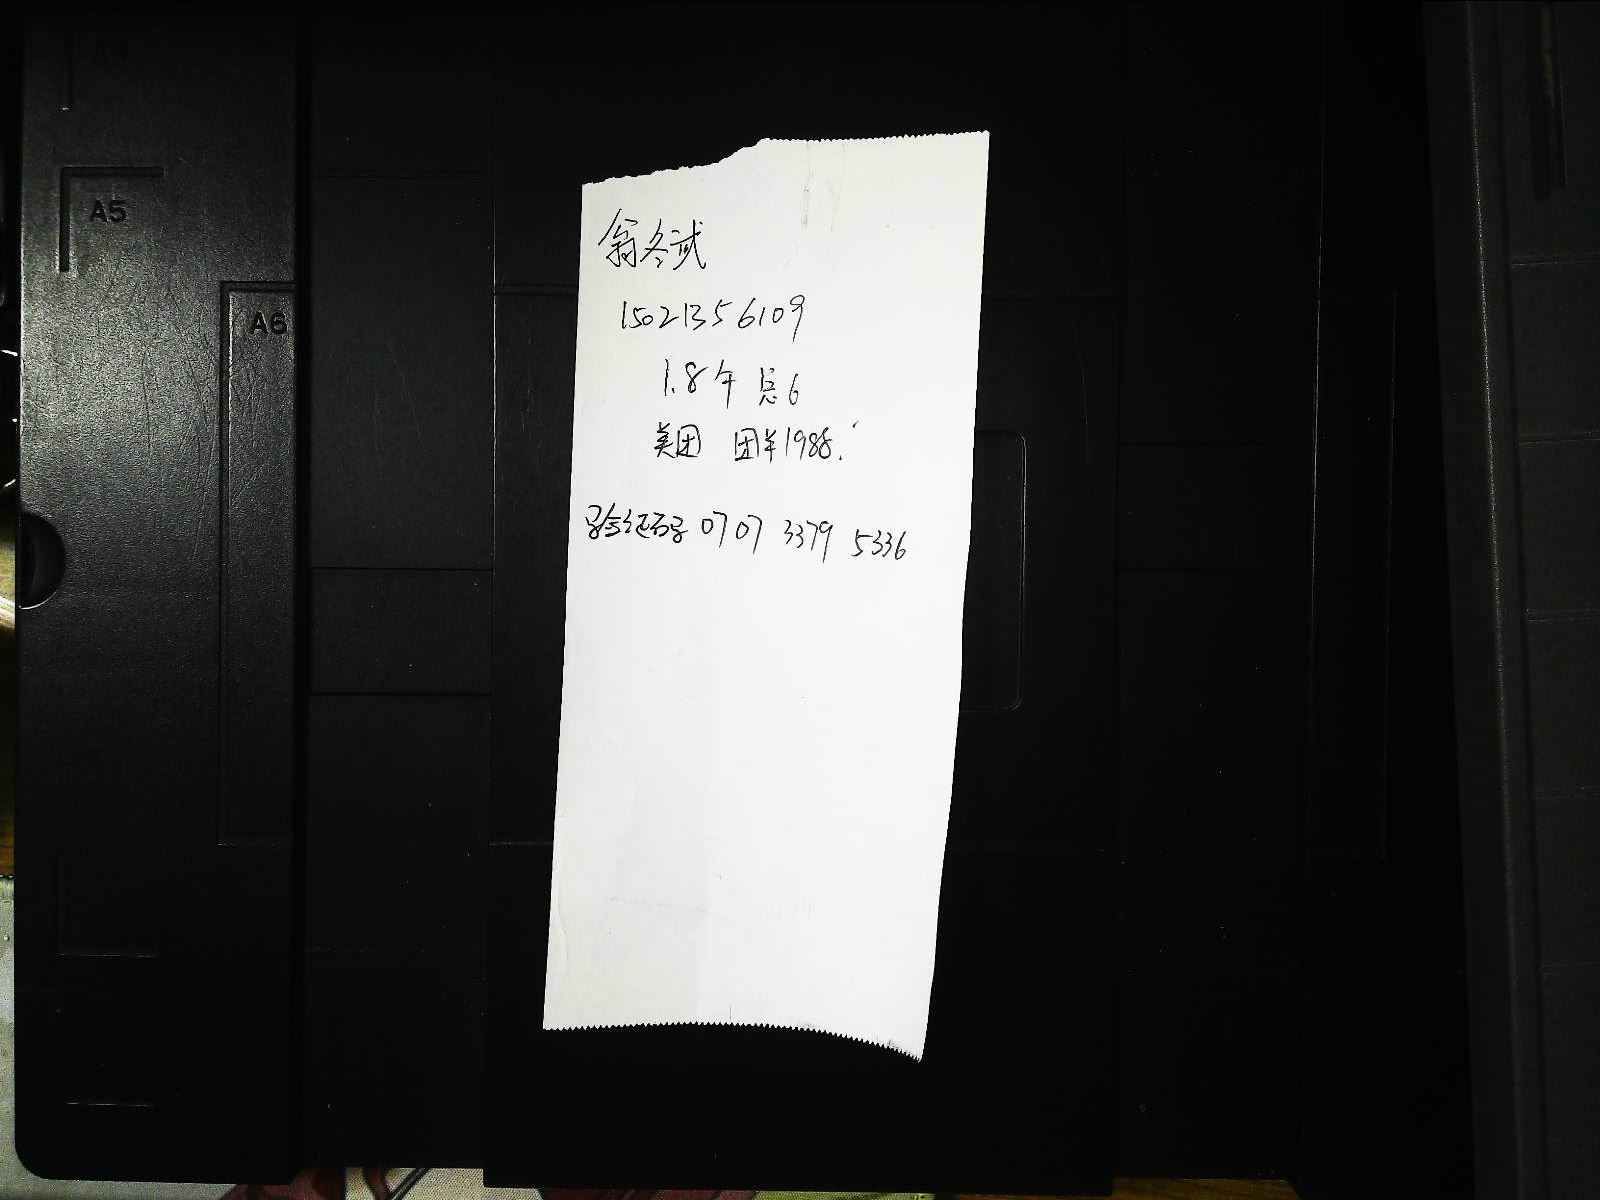 A5
A6
翁冬武
15021356109
1.8午 总6
美团 团羊1988.
验证码 0707 3379 5336